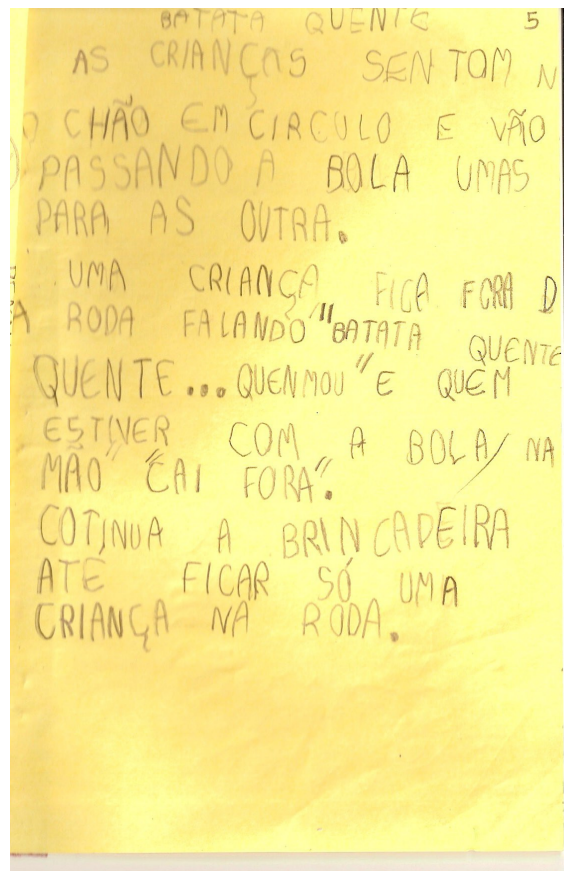 BATATA QUENTE 5
AS CRIANÇAS SENTOM N
O CHÃO EM CIRCULO E VÃO
PASSANDO A BOLA UMAS
PARA AS OUTRA.
UMA CRIANÇA FICA FORA D
A RODA FALANDO "BATATA QUENTE
QUENTE... QUENMOU" E QUEM
ESTIVER COM A BOLA/ NA
MÃO" "CAI FORA".
COTINUA A BRINCADEIRA
ATÉ FICAR SÓ UMA
CRIANÇA NA RODA.